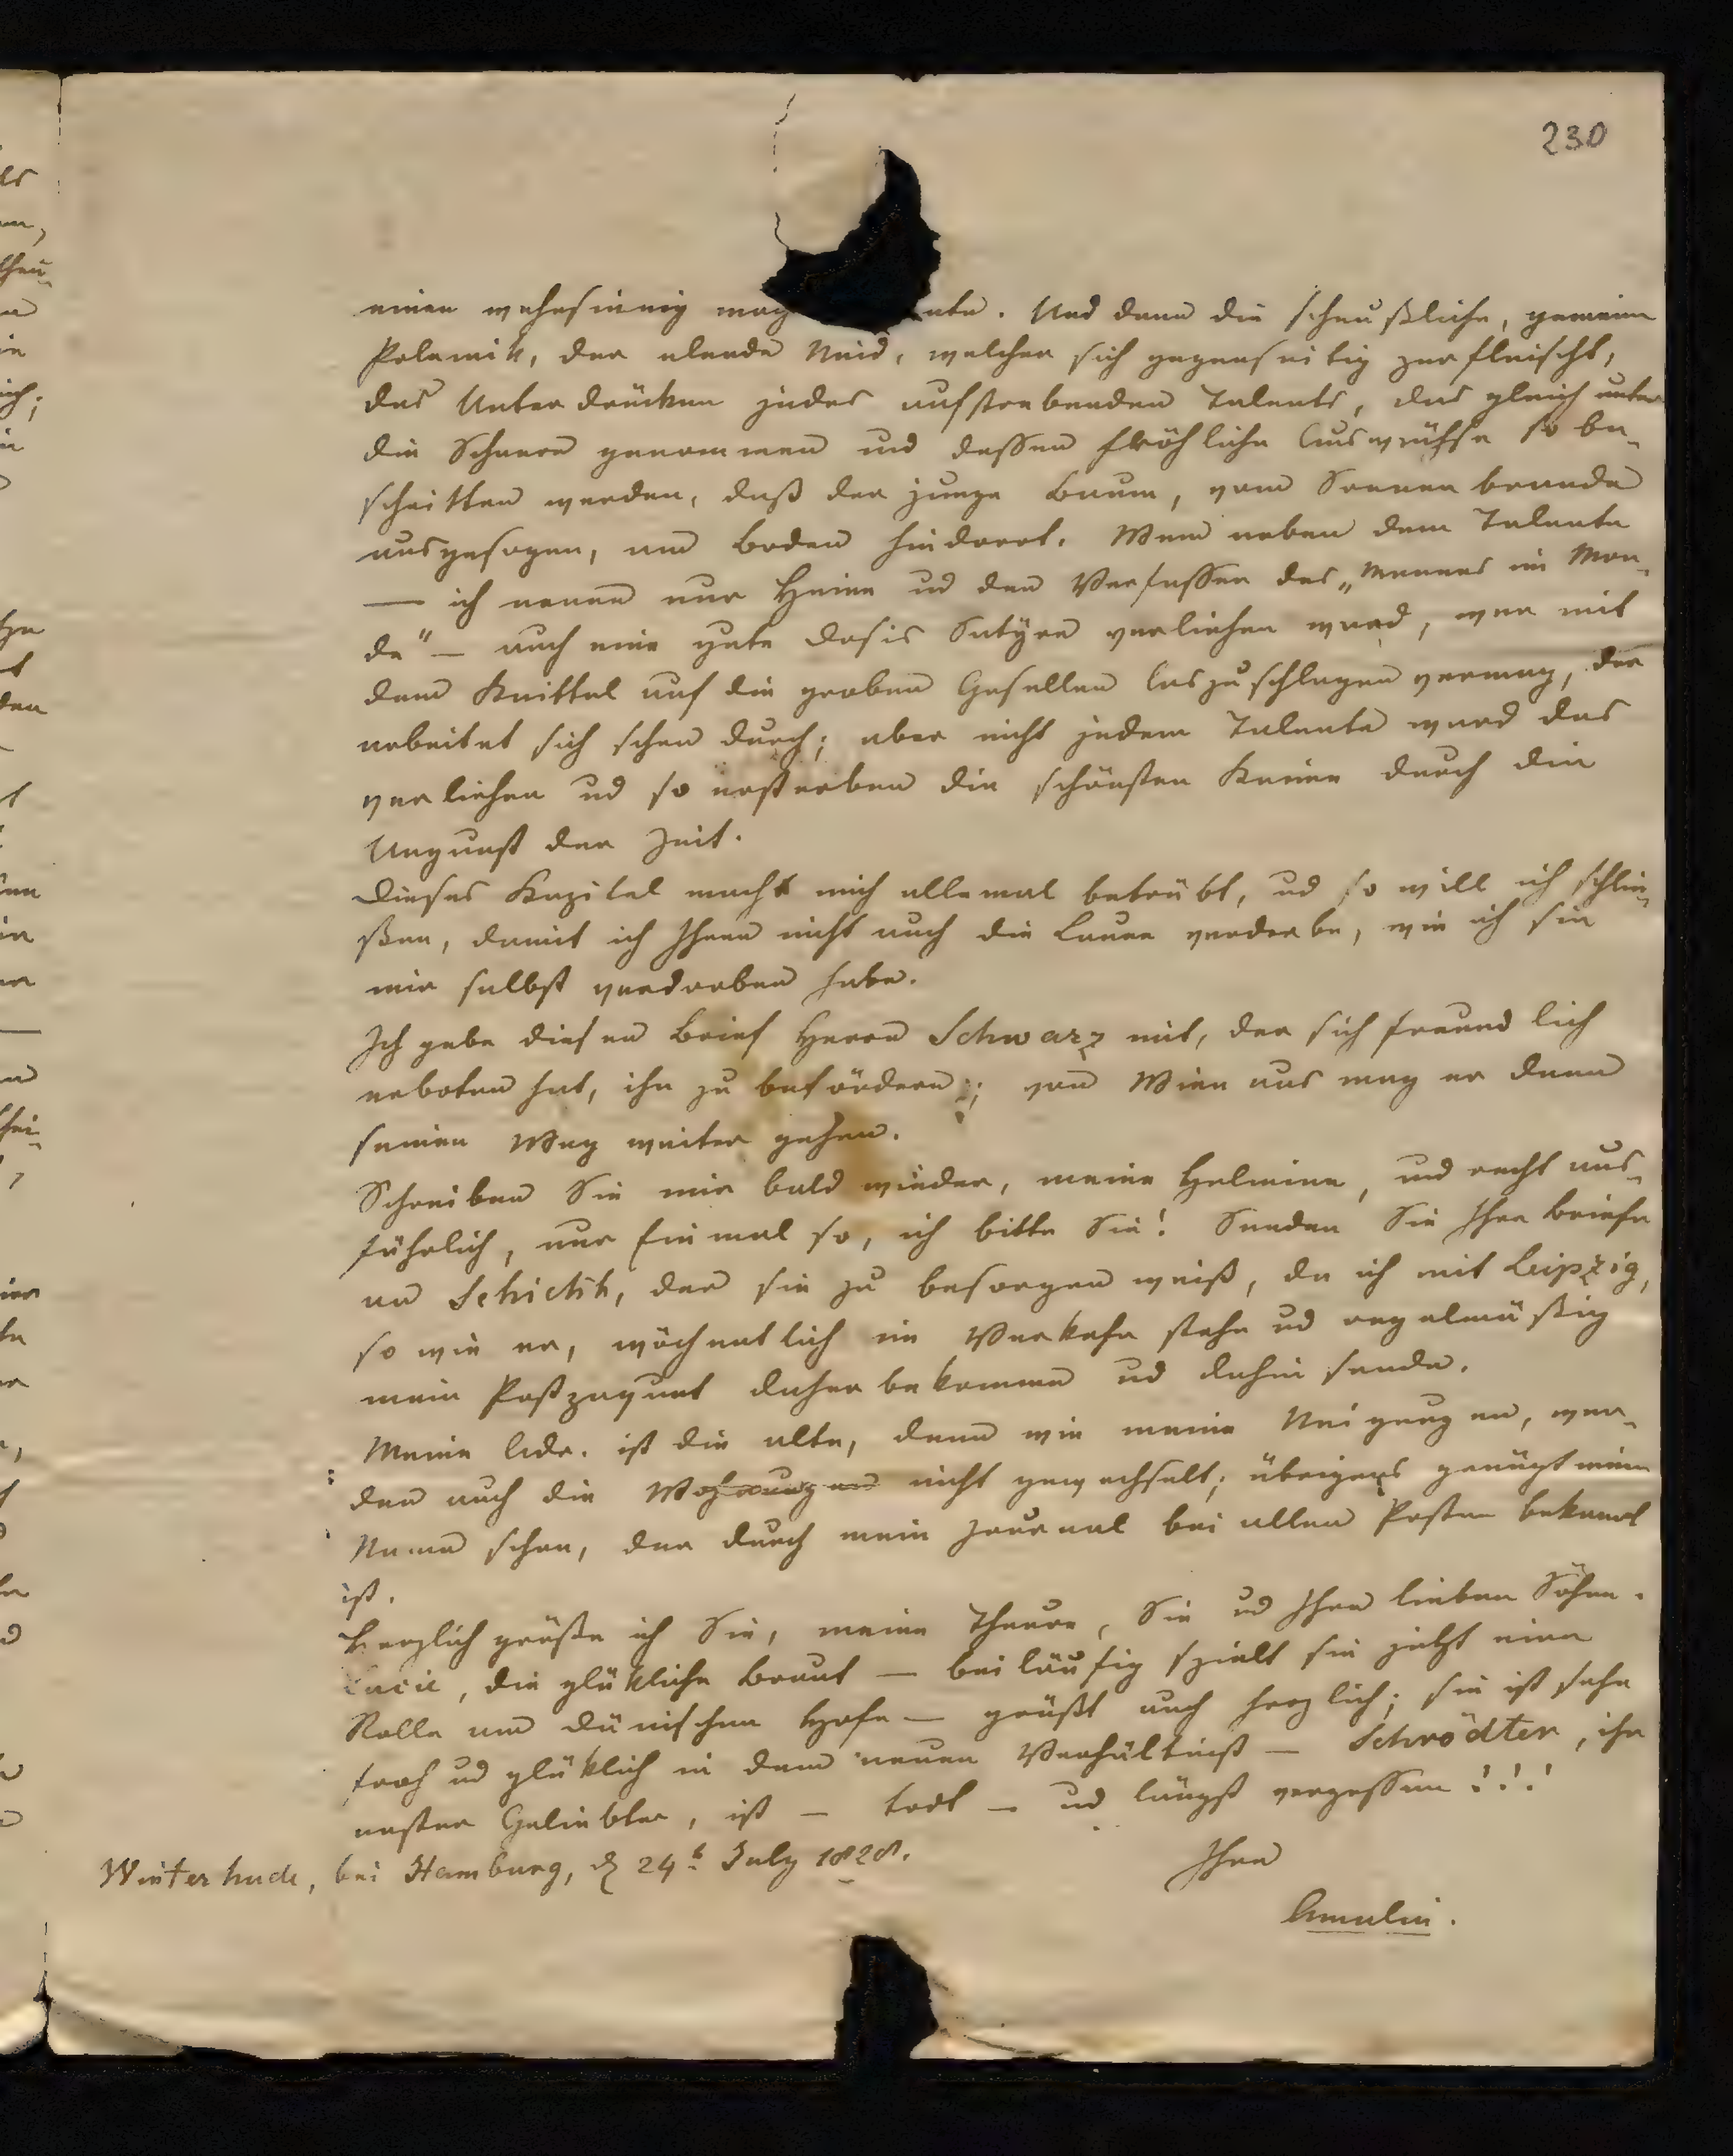 230
einen wahnsinnig mag nte. Und dann die scheußliche, gemeine
Polemik, der elende Neid, welcher sich gegenseitig zerfleischt,
das Unterdrücken jedes aufstrebenden Talents, das gleich unter
die Scheere genommen und dessen fröhliche Auswüchse so be-
schnitten werden, daß der junge Baum, vom Sonnenbrande
ausgesogen, am Boden hindorrt. Wem neben dem Talente
— ich nenne nur Heine ud den Verfasser des „Mannes im Mon-
de“ — auch eine gute Dosis Satyre verliehen ward, wer mit
dem Knittel auf die groben Gesellen loszuschlagen vermag, der
arbeitet sich schon durch; aber nicht jedem Talente ward das
verliehen ud so ersterben die schönsten Keime durch die
Ungunst der Zeit.
Dieses Kapitel macht mich allemal betrübt, ud so will ich schlie-
ßen, damit ich Ihnen nicht auch die Laune verderbe, wie ich sie
mir selbst verdorben habe.
Ich gebe diesen Brief Herrn Schwarz mit, der sich freundlich
erboten hat, ihn zu befördern; von Wien aus mag er dann
seinen Weg weiter gehen.
Schreiben Sie mir bald wieder, meine Helmina, und recht aus-
führlich, nur Einmal so, ich bitte Sie! Senden Sie Ihre Briefe
an Schickh, der sie zu besorgen weiß, da ich mit Leipzig,
so wie er, wöchentlich in Verkehr stehe ud regelmäßig
mein Postpaquet daher bekomme ud dahin sende.
Meine Adr. ist die alte, denn wie meine Neigungen, wer-
den auch die Wohnungen nicht gewechselt; übrigens genügt mein
Name schon, der durch mein Journal bei allen Posten bekannt
ist.
Herzlich grüße ich Sie, meine Theure, Sie ud Ihre lieben Söhne.
Lucie, die glükliche Braut — beiläufig spielt sie jetzt eine
Rolle am dänischen Hofe — grüßt auch herzlich; sie ist sehr
froh ud glüklich in dem neuen Verhältniß — Schrödter, ihr
erster Geliebter, ist — todt — ud längst vergessen!!!
Winterhude, bei Hamburg, d 24t July 1828.
Ihre
Amalia.